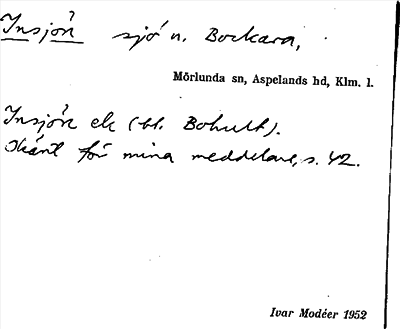 Insjön sjö n. Bockara,
Mörlunda sn, Aspelands hd, Klm. l.
Insjön ek (bl. Bohult).
Okänt för mina meddelare, s. 42.
Ivar Modéer 1952